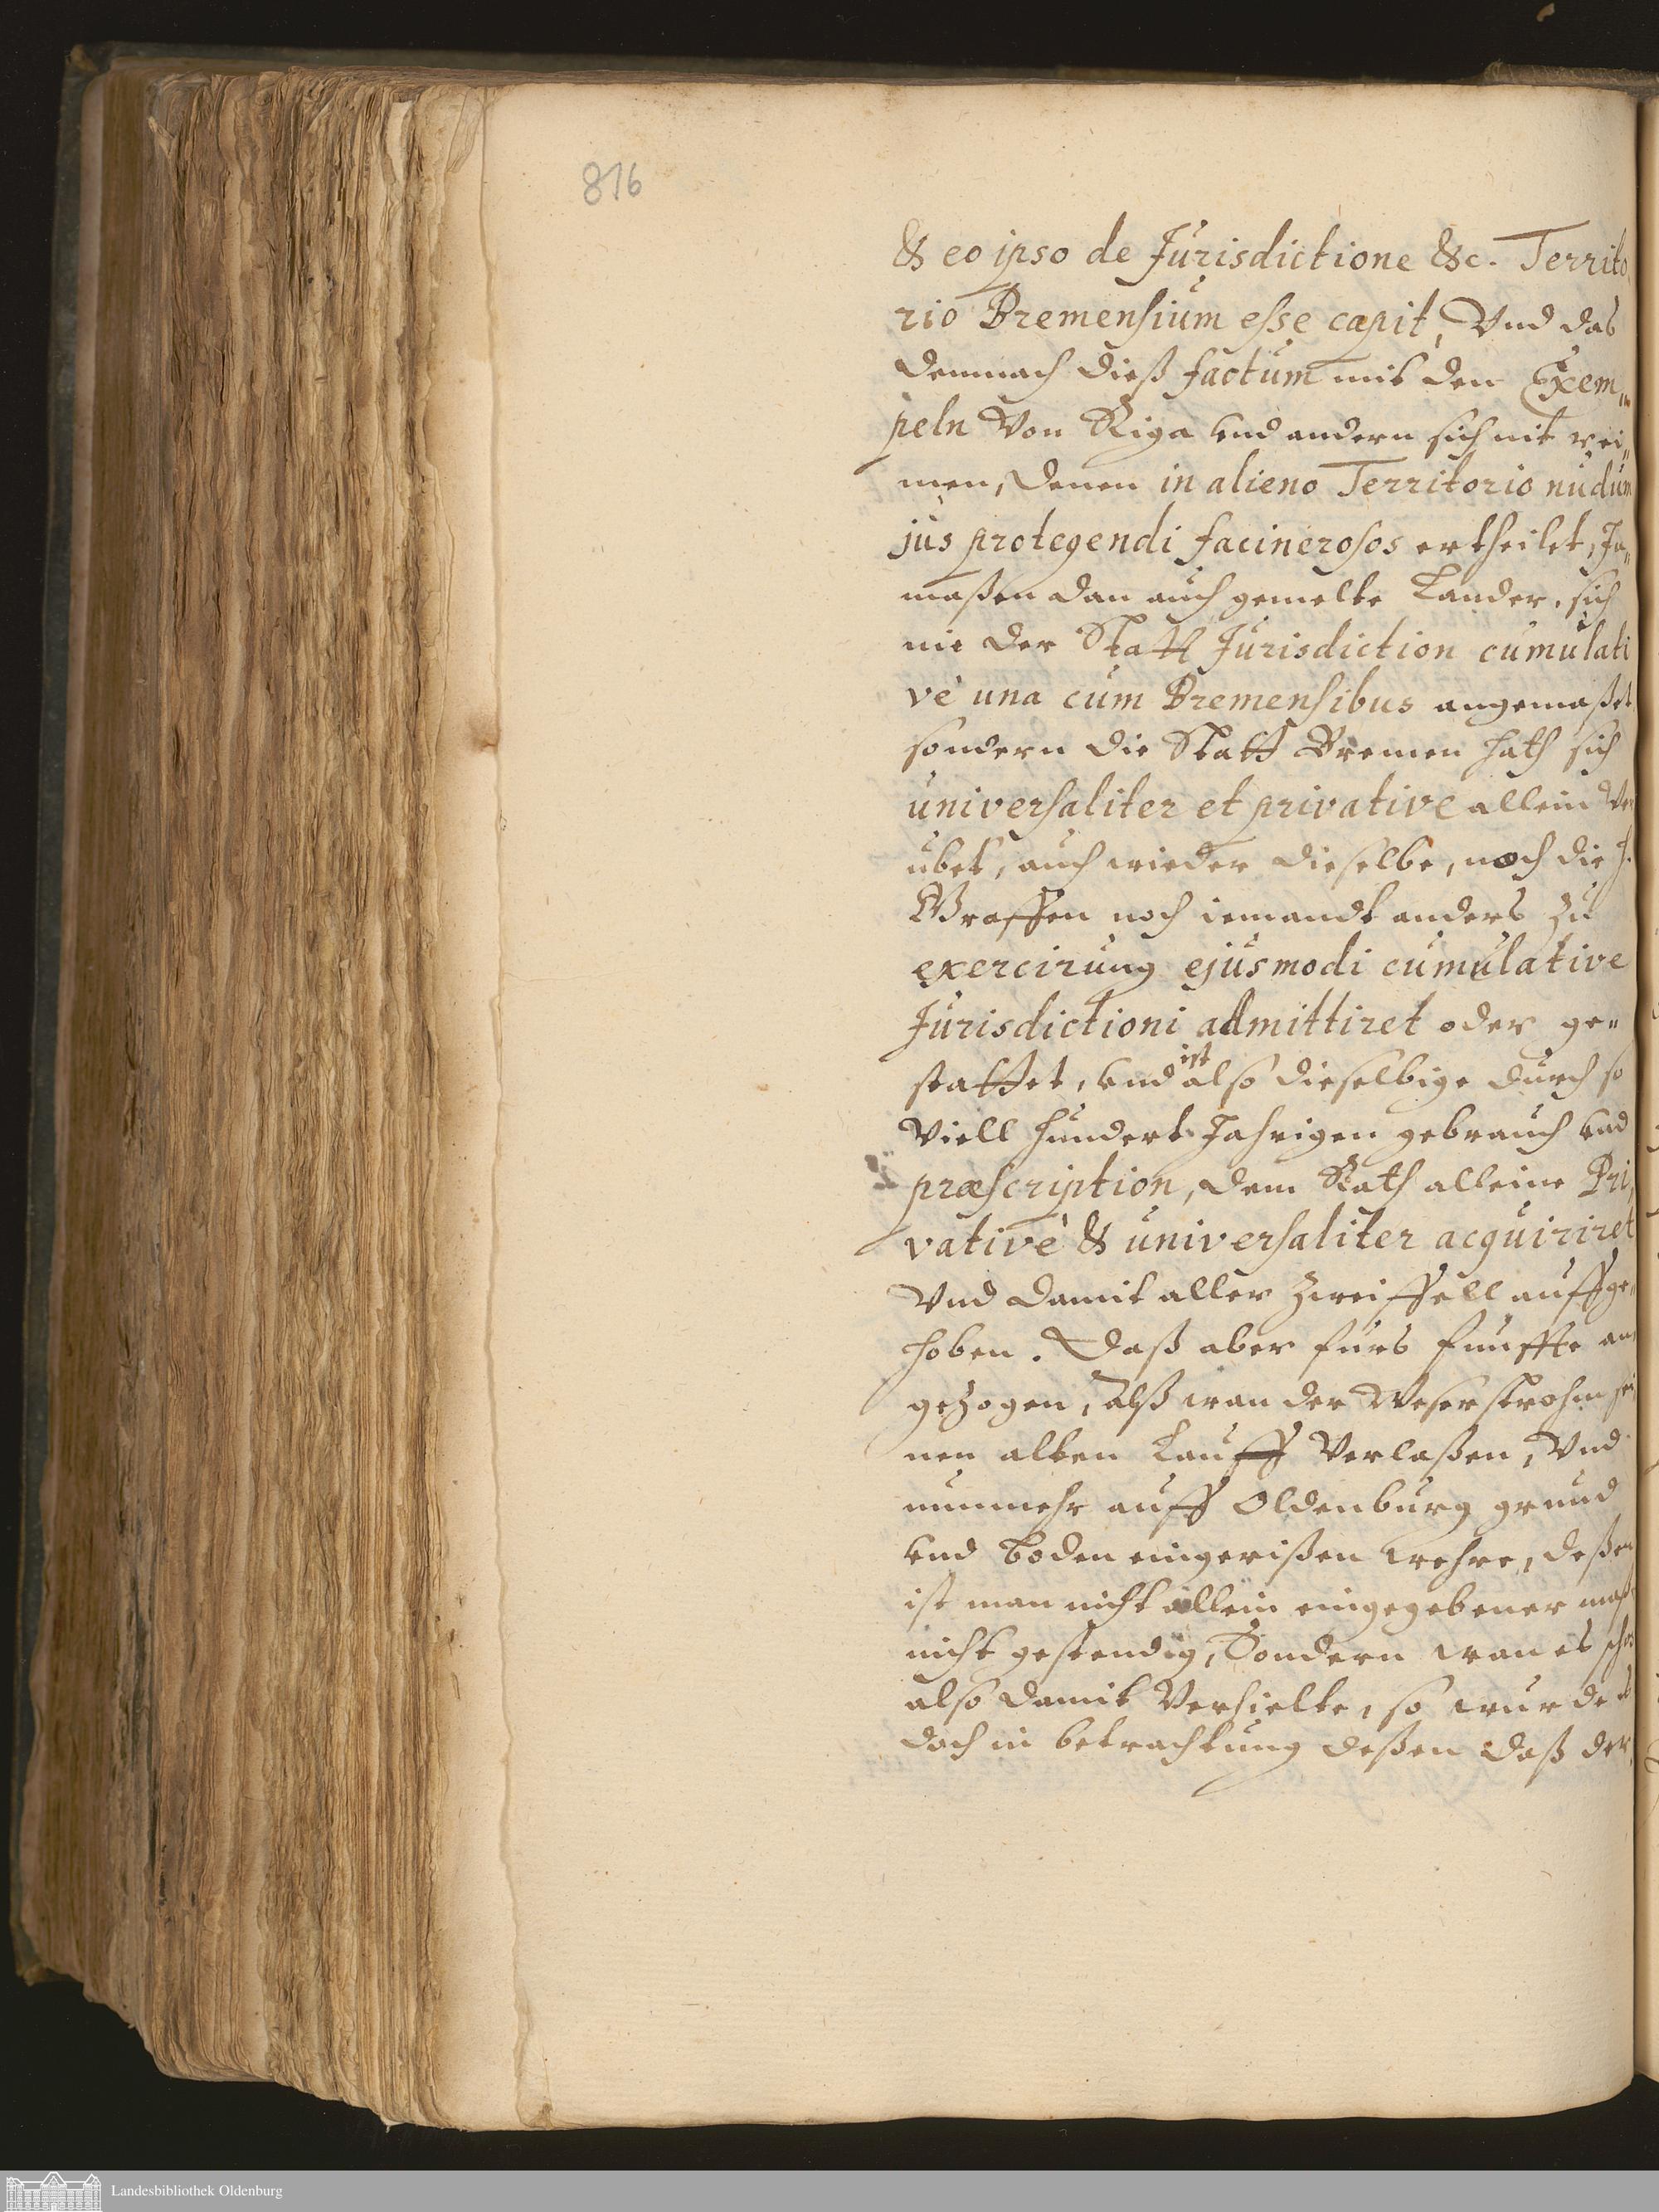 816
& eo ipso de Jurisdictione &c. Territo
rio Bremensium esse cæpit, Vnd das
demnach dieß factum mit den Exem„
peln Von Riga vnd andern sich nit rei„
men, denen in alieno Territorio nudum
jus protegendi facinerosos ertheilet, Ja„
maßen dan auch gemelte Länder, sich
nie der Statt Jurisdiction cumulati
vè una cum Bremensibus angemaßet
sondern die Statt Bremen hath sich
universaliter et privative allein Ver
übet, auch wieder dieselbe, noch die H.
Graffen noch iemandt anders zu
exercirung ejusmodi cumulative
Jurisdictioni admittiret oder ge„
stattet, vnd ist also dieselbige durch so
Viell hundert Jahrigen gebrauch vnd
præscription, dem Rath alleine Pri,
vativè & universaliter acquiriret
Vnd damit aller Zweiffell auffge„
hoben. Daß aber fürs fünffte an
gezogen, Alß wan der Weserstrohm sei
nen alten Lauff Verlaßen, Vnd
nunmehr auff Oldenburg grund
vnd boden eingerißen wehre, deßen
ist man nicht allein eingegebener maß
nicht gestendig, Sondern wan es schon
also damit Verhielte, so wurde
doch in betrachtung deßen daß der
Landesbibliothek Oldenburg